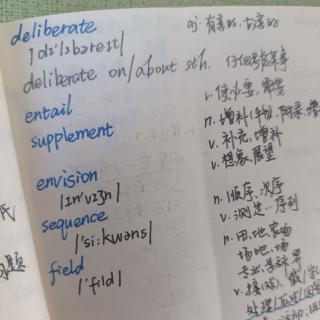 deliberate adj. 有意的, 故意的
/dɪˈlɪbəreɪt/
deliberate on/about sth. 仔细考虑某事
entail v. 使必要, 需要
supplement n. 增补(物), 附录
v. 补充, 增补
v. 想象, 展望
envision
/ɪnˈvɪʒn/
sequence n. 顺序, 次序
v. 测定…序列
/ˈsiːkwəns/
field n. 田地, 农场
场地, 场
/ˈfild/
专业, 学科
v. 接
处理/应付
氏
题